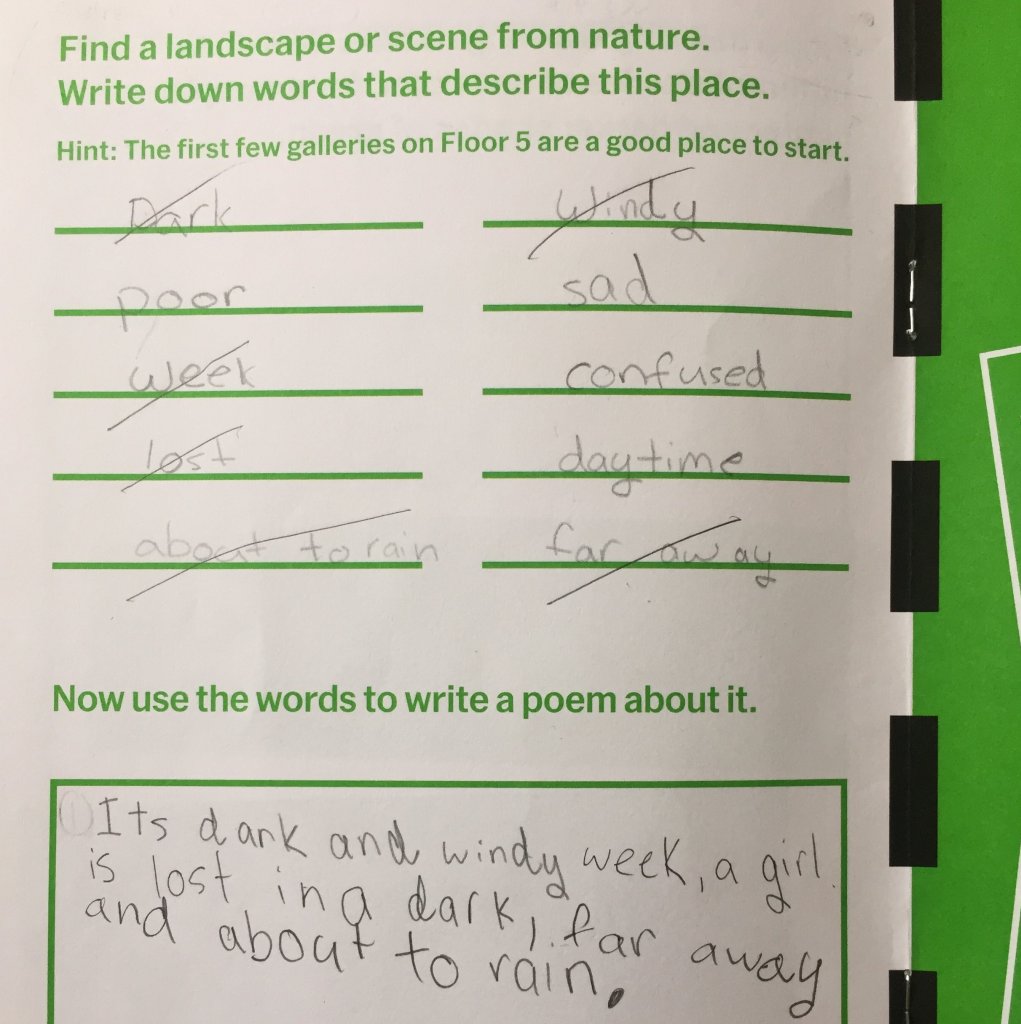 Find a landscape or scene from nature.
Write down words that describe this place.
Hint: The first few galleries on Floor 5 are a good place to start.
Dark
Windy
poor
sad
week
confused
lost
daytime
about to rain
far away
Now use the words to write a poem about it.
Its dark and windy week, a girl
is lost in a dark, far away
and about to rain.